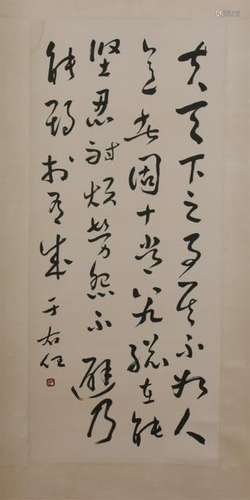 夫天下之事其不如人
意者固十常八九總在能
堅忍耐煩勞怨不避乃
能期於有成
于右任